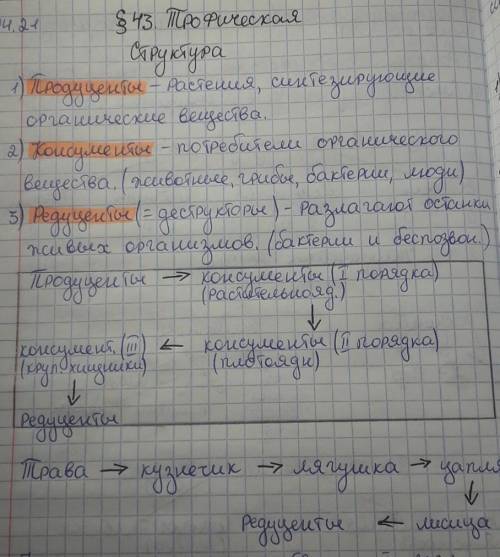 4.21 § 43. Трофическая
структура
1) Продуценты - растения, синтезирующие
органические вещества.
2) Консументы - потребители органического
вещества. (животные, грибы, бактерии, люди)
3) Редуценты (= деструкторы) - разлагают останки
живых организмов. (бактерии и беспозвон.)
Продуценты → консументы (I порядка)
(растительнояд.)
↓
консумент. (III) ← консументы (II порядка)
(круп. хищники) (плотоядн)
↓
Редуценты
Трава → кузнечик → лягушка → цапля
↓
Редуценты ← лисица